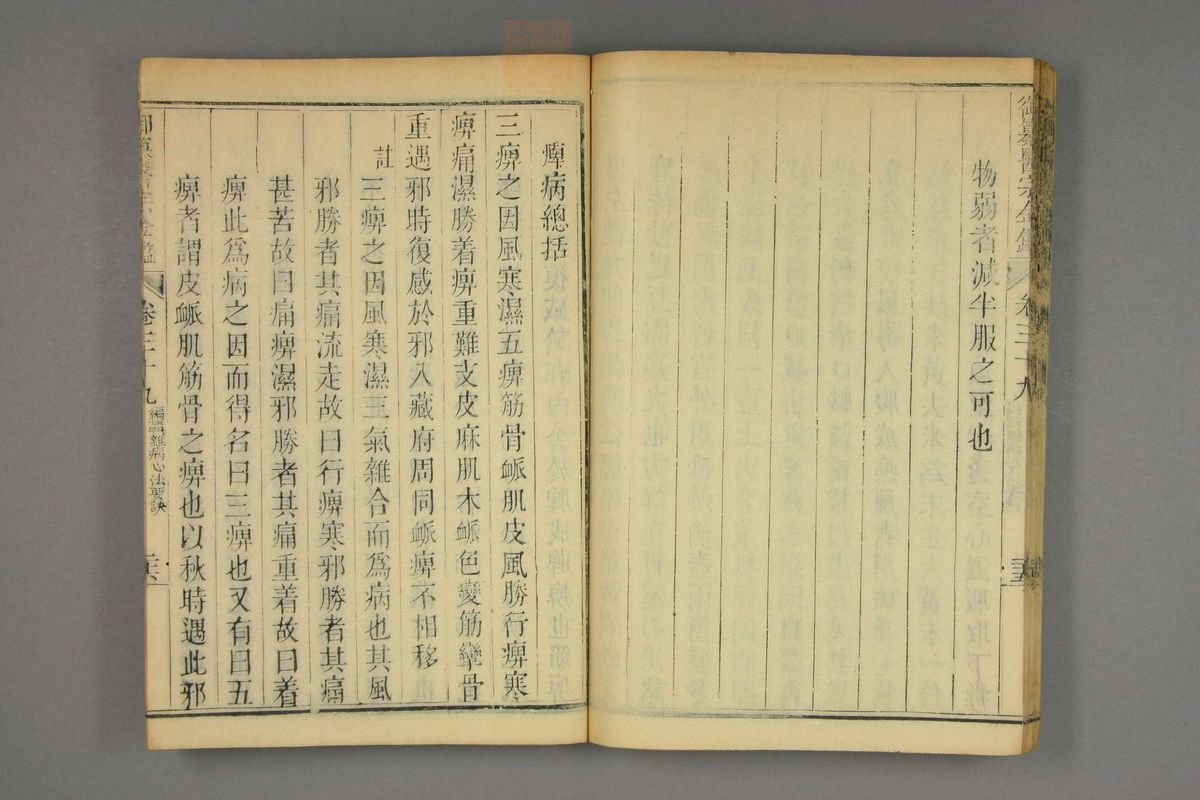 御纂醫宗金鑑 卷三十九
物弱者減半服之可也
痺病總括
三痺之因風寒濕五痺筋骨衇肌皮風勝行痺寒
痺痛濕勝着痺重難支皮麻肌木衇色變筋攣骨
重遇邪時復感於邪入藏府周同衇痺不相移
註
三痺之因風寒濕三氣雜合而爲病也其風
邪勝者其痛流走故曰行痺寒邪勝者其痛
甚苦故曰痛痺濕邪勝者其痛重着故曰着
痺此爲病之因而得名曰三痺也又有曰五
痺者謂皮衇肌筋骨之痺也以秋時遇此邪
御纂醫宗金鑑 卷三十九 編輯雜病心法要訣